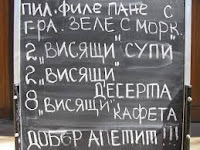 ПИЛ. ФИЛЕ ПАНЕ С
ГРА. ЗЕЛЕ С МОРК.
2 „ВИСЯЩИ" СУПИ
2 „ВИСЯЩИ"
ДЕСЕРТА
8 „ВИСЯЩИ" КАФЕТА
ДОБЪР АПЕТИТ!!!